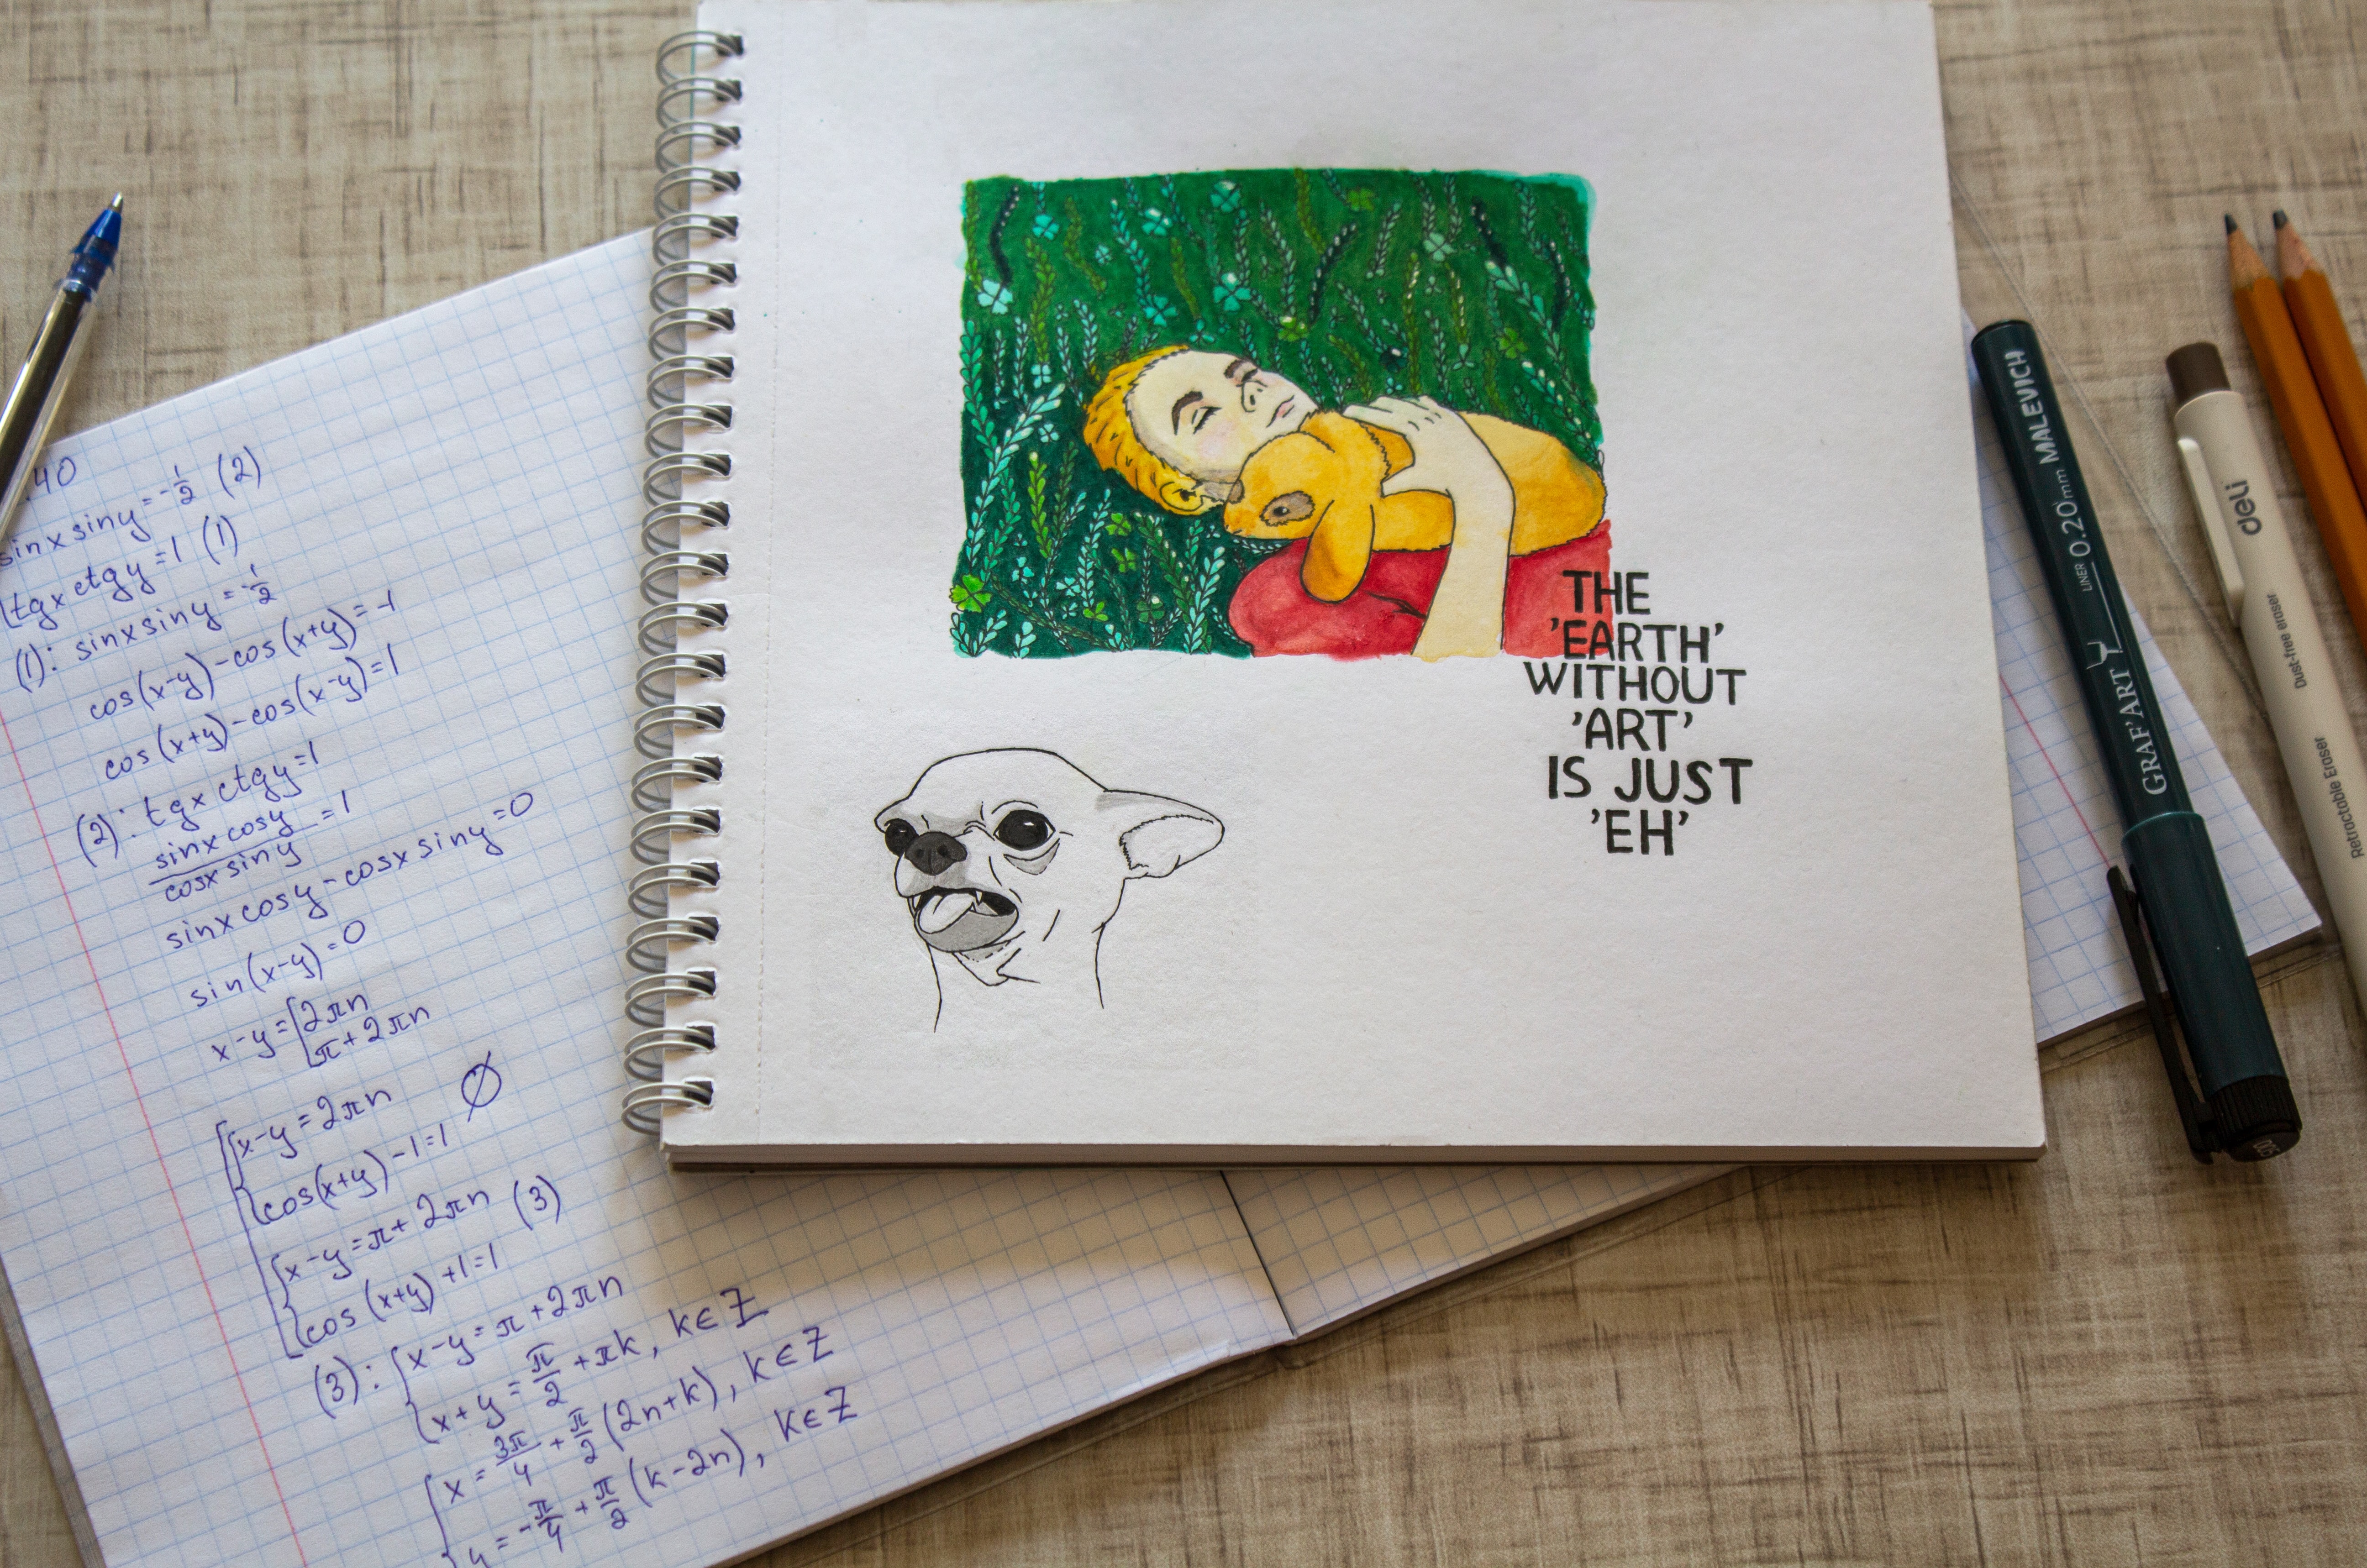 .40
sinx siny = -1/2 (2)
tgx ctgy = 1 (1)
(1): sinx siny = -1/2
cos(x-y) - cos(x+y) = -1
cos(x+y) - cos(x-y) = 1
(2): tgx ctgy = 1
sinx cosy / cosx siny = 1
sinx cosy - cosx siny = 0
sin(x-y) = 0
x-y = [2πn
π+2πn
x-y = 2πn
cos(x+y) - 1 = 1 Ø
x-y = π + 2πn (3)
cos(x+y) + 1 = 1
(3): { x-y = π + 2πn
x+y = π/2 + πk, k∈Z
x = 3π/4 + π/2 (2n+k), k∈Z
y = -π/4 + π/2 (k-2n), k∈Z
THE
'EARTH'
WITHOUT
'ART'
IS JUST
'EH'
GRAF'ART LINER 0.20mm MALEVICH
deli
Dust-free eraser
Retractable Eraser